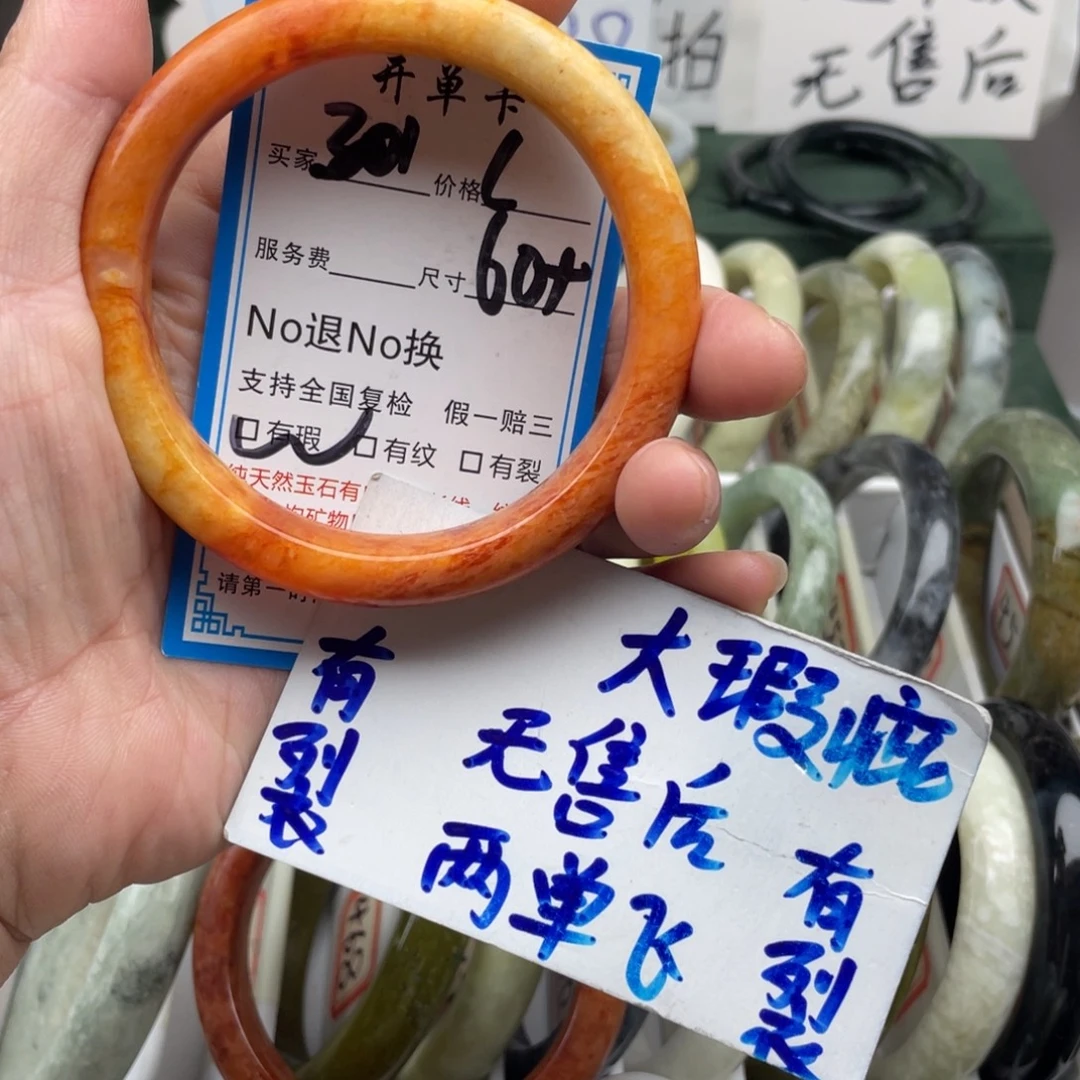 拍
无售后
开单卡
买家 301 价格 L
服务费 尺寸 60+
No退No换
支持全国复检 假一赔三
口有瑕 口有纹 口有裂
纯天然玉石有
矿物
请第一时
有裂
大瑕疵
无售后
两单飞
有裂